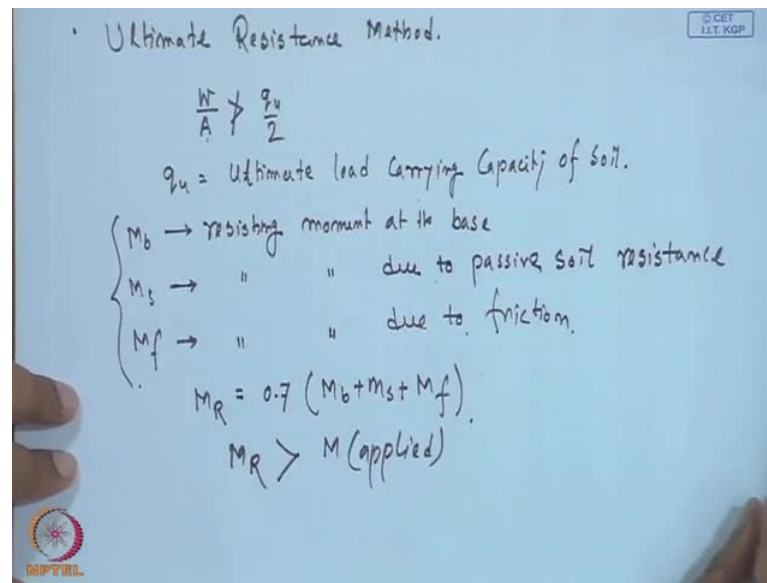 © CET
I.I.T. KGP
• Ultimate Resistance Method.
W/A ≯ qu/2
qu = Ultimate load Carrying Capacity of Soil.
Mb → resisting moment at the base
Ms → " " due to passive soil resistance
Mf → " " due to friction.
MR = 0.7 (Mb+Ms+Mf).
MR > M (applied)
NPTEL